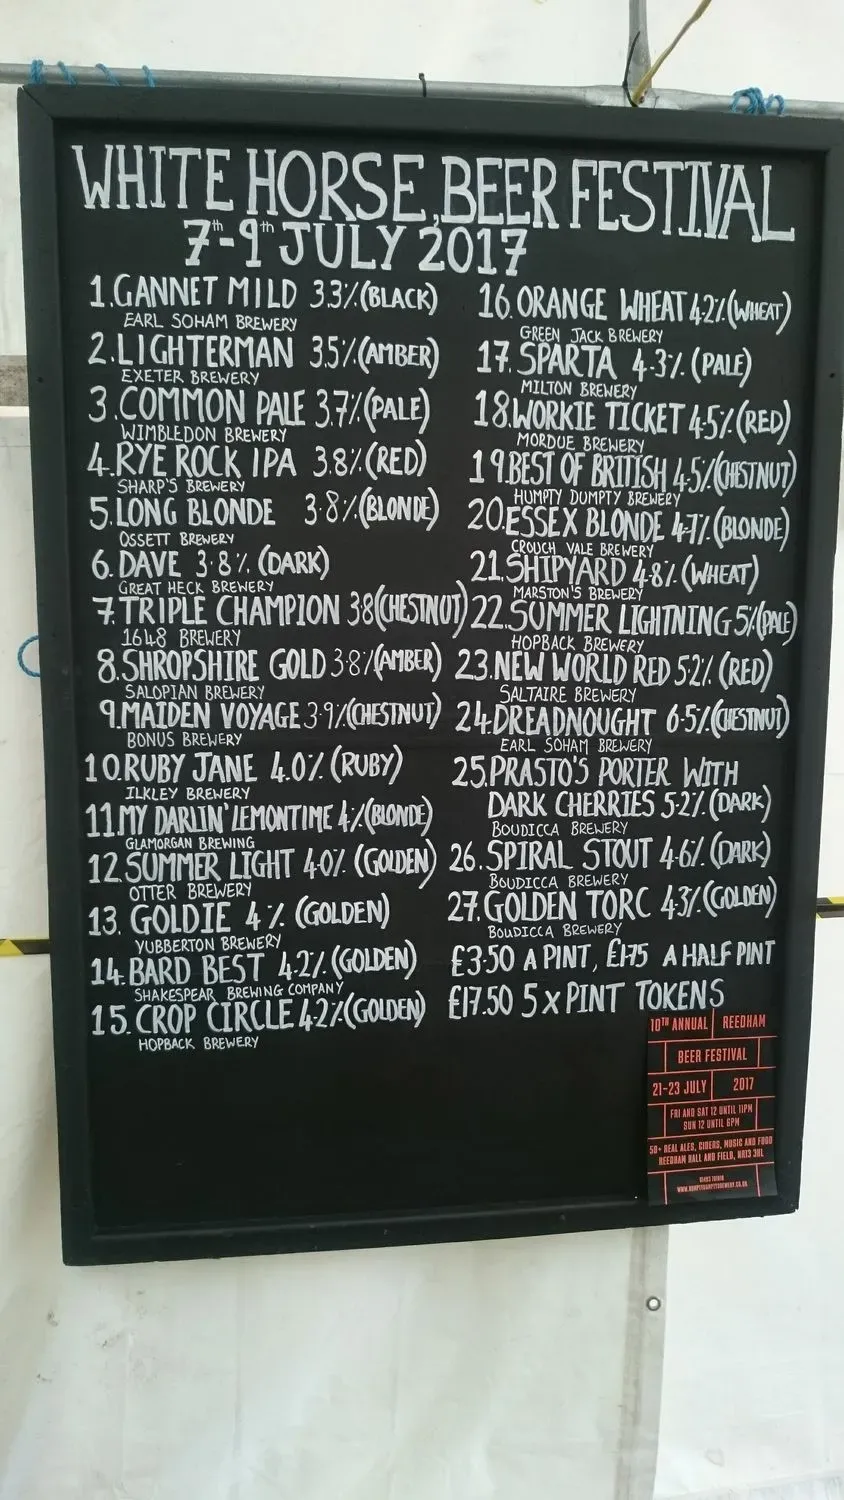 WHITE HORSE BEER FESTIVAL
7th-9th JULY 2017
1. GANNET MILD 3.3% (BLACK)
EARL SOHAM BREWERY
2. LIGHTERMAN 3.5% (AMBER)
EXETER BREWERY
3. COMMON PALE 3.7% (PALE)
WIMBLEDON BREWERY
4. RYE ROCK IPA 3.8% (RED)
SHARP'S BREWERY
5. LONG BLONDE 3.8% (BLONDE)
OSSETT BREWERY
6. DAVE 3.8% (DARK)
GREAT HECK BREWERY
7. TRIPLE CHAMPION 3.8 (CHESTNUT)
1648 BREWERY
8. SHROPSHIRE GOLD 3.8% (AMBER)
SALOPIAN BREWERY
9. MAIDEN VOYAGE 3.9% (CHESTNUT)
BONUS BREWERY
10. RUBY JANE 4.0% (RUBY)
ILKLEY BREWERY
11 MY DARLIN' LEMONTIME 4% (BLONDE)
GLAMORGAN BREWING
12. SUMMER LIGHT 4.0% (GOLDEN)
OTTER BREWERY
13. GOLDIE 4% (GOLDEN)
YUBBERTON BREWERY
14. BARD BEST 4.2% (GOLDEN)
SHAKESPEAR BREWING COMPANY
15. CROP CIRCLE 4.2% (GOLDEN)
HOPBACK BREWERY
16. ORANGE WHEAT 4.2% (WHEAT)
GREEN JACK BREWERY
17. SPARTA 4.3% (PALE)
MILTON BREWERY
18. WORKIE TICKET 4.5% (RED)
MORDUE BREWERY
19. BEST OF BRITISH 4.5% (CHESTNUT)
HUMPTY DUMPTY BREWERY
20. ESSEX BLONDE 4.7% (BLONDE)
CROUCH VALE BREWERY
21. SHIPYARD 4.8% (WHEAT)
MARSTON'S BREWERY
22. SUMMER LIGHTNING 5% (PALE)
HOPBACK BREWERY
23. NEW WORLD RED 5.2% (RED)
SALTAIRE BREWERY
24. DREADNOUGHT 6.5% (CHESTNUT)
EARL SOHAM BREWERY
25. PRASTO'S PORTER WITH
DARK CHERRIES 5.2% (DARK)
BOUDICCA BREWERY
26. SPIRAL STOUT 4.6% (DARK)
BOUDICCA BREWERY
27. GOLDEN TORC 4.3% (GOLDEN)
BOUDICCA BREWERY
£3.50 A PINT, £1.75 A HALF PINT
£17.50 5 x PINT TOKENS
10TH ANNUAL REEDHAM
BEER FESTIVAL
21-23 JULY 2017
FRI AND SAT 12 UNTIL 11PM
SUN 12 UNTIL 6PM
50+ REAL ALES, CIDERS, MUSIC AND FOOD
REEDHAM HALL AND FIELD, NR13 3HL
WWW.HUMPTYDUMPTYBREWERY.CO.UK